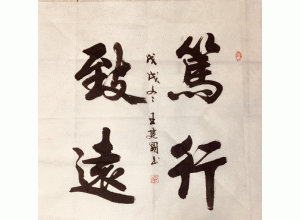 篤行
致遠
戊戌冬王建國书